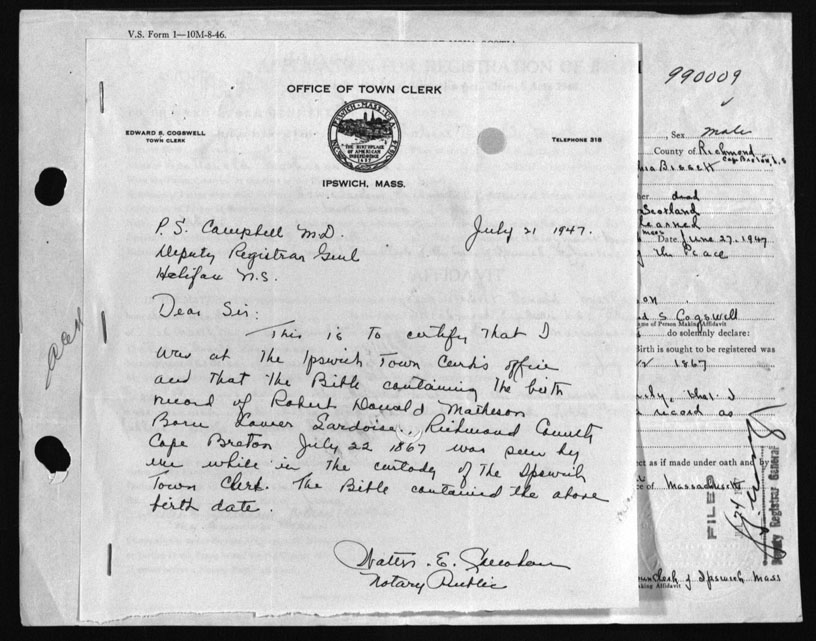 V.S. Form 1—10M-8-46.
990009
OFFICE OF TOWN CLERK
EDWARD S. COGSWELL
TOWN CLERK
IPSWICH, MASS.
THE BIRTHPLACE
OF AMERICAN
INDEPENDENCE
TELEPHONE 318
IPSWICH, MASS.
P.S. Campbell M.D.
July 21 1947.
Deputy Registrar Genl
Halifax N.S.
Dear Sir:
This is to certify that I
was at the Ipswich Town Clerk's office
and that the Bible containing the birth
record of Robert Donald Matheson
Born Lower Lardoise, Richmond County
Cape Breton July 22 1867 was seen by
me while in the custody of the Ipswich
Town Clerk. The Bible contained the above
birth date.
Walter E.
Notary Public
, Sex male
County of Richmond
Cape Breton, N.S
Bissett
dead
Scotland
Learned
Date June 27, 1947
the Peace
S Cogswell
me of Person Making Affidavit
do solemnly declare:
Birth is sought to be registered was
1867
that I
record as
ct as if made under oath and by
of Massachusetts
FILED
Deputy Registrar General
Clerk of Ipswich Mass
king Affidavit